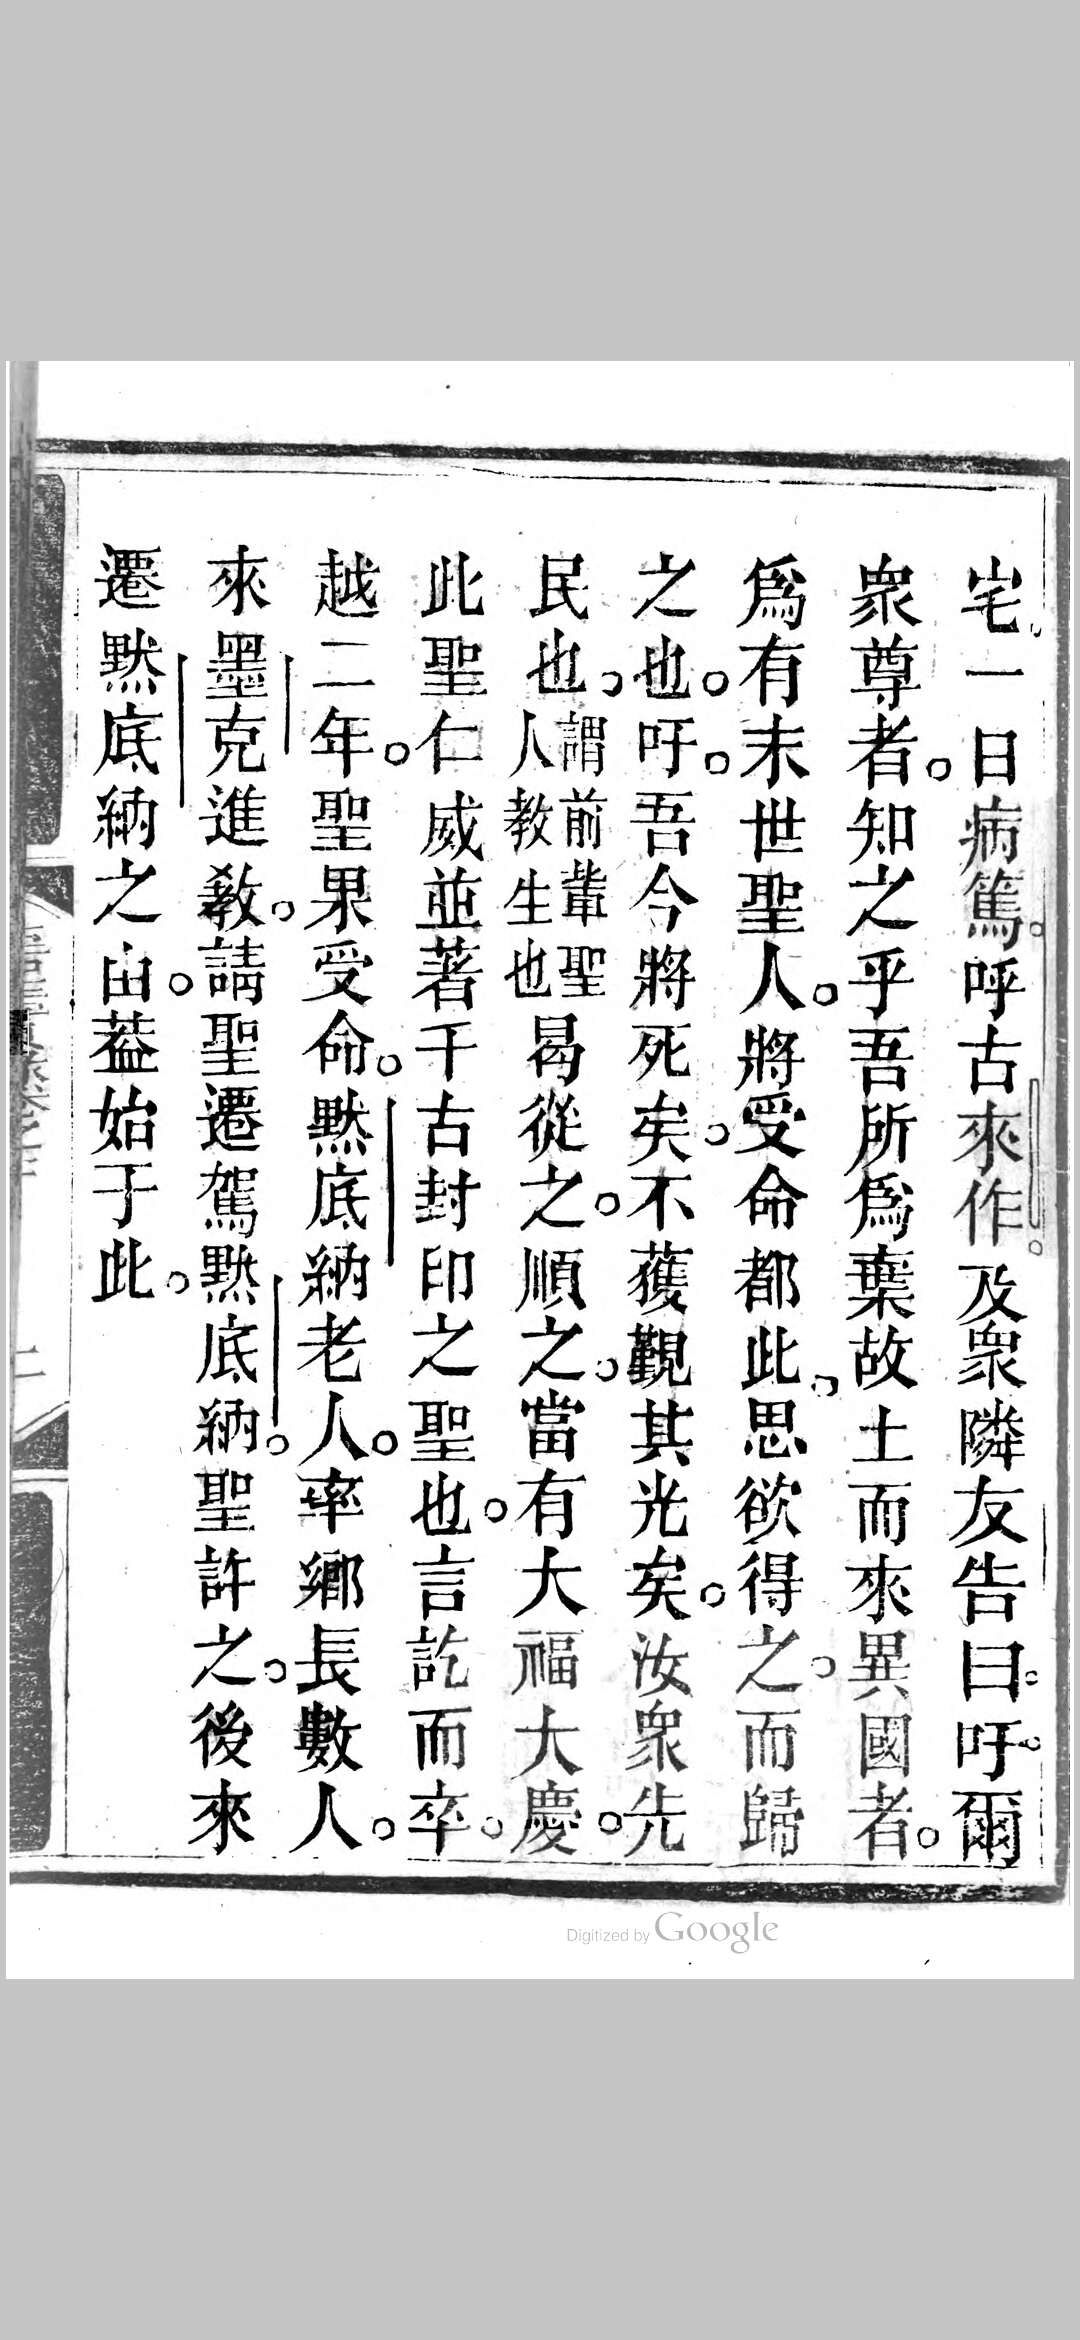 宅一日病篤呼古來作及衆隣友告曰吁爾
衆尊者知之乎吾所爲棄故土而來異國者
爲有末世聖人將受命都此思欲得之而歸
之也吁吾今將死矣不獲覲其光矣汝衆先
民也謂前輩聖人教生也曷從之順之當有大福大慶
此聖仁威並著千古封印之聖也言訖而卒
越二年聖果受命默底納老人率鄉長數人
來墨克進教請聖遷駕默底納聖許之後來
遷默底納之由葢始于此
Digitized by Google